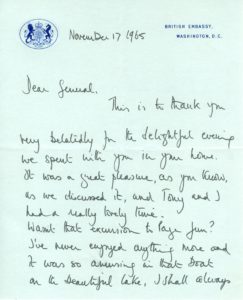 November 17 1965
BRITISH EMBASSY,
WASHINGTON, D.C.
Dear General.
This is to thank you
very belatedly for the delightful evening
we spent with you in your home.
It was a great pleasure, as you know,
as we discussed it, and Tony and I
had a really lovely time.
Wasnt that excursion to Page fun?
I've never enjoyed anything more and
it was so amusing in that boat
on the beautiful lake, I shall always